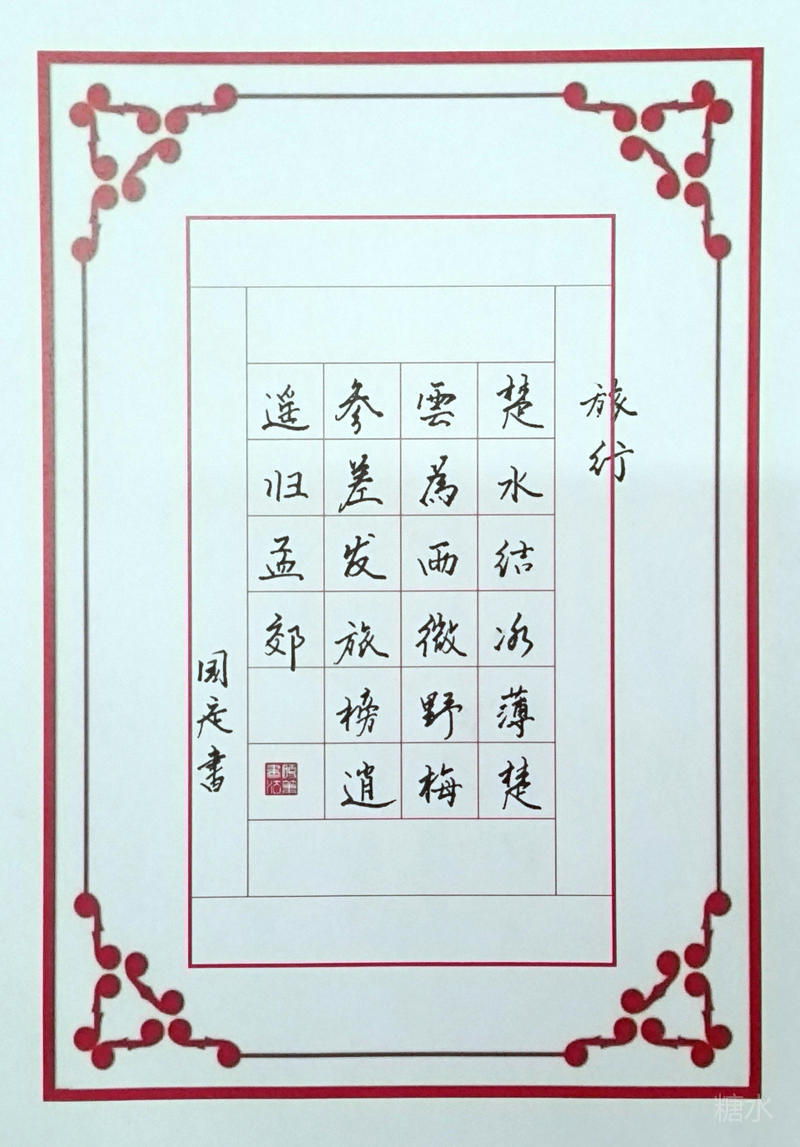 旅行
楚水结冰薄楚
雲為雨微野梅
参差发旅榜逍
遥归孟郊
国書
硬筆書法
糖水